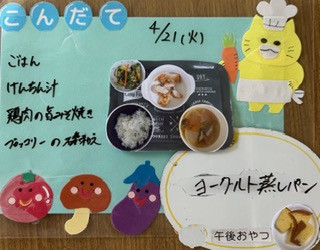 こんだて
4/21(火)
ごはん
けんちん汁
鶏肉の旨み焼き
ブロッコリーの
ヨーグルト蒸しパン
午後おやつ